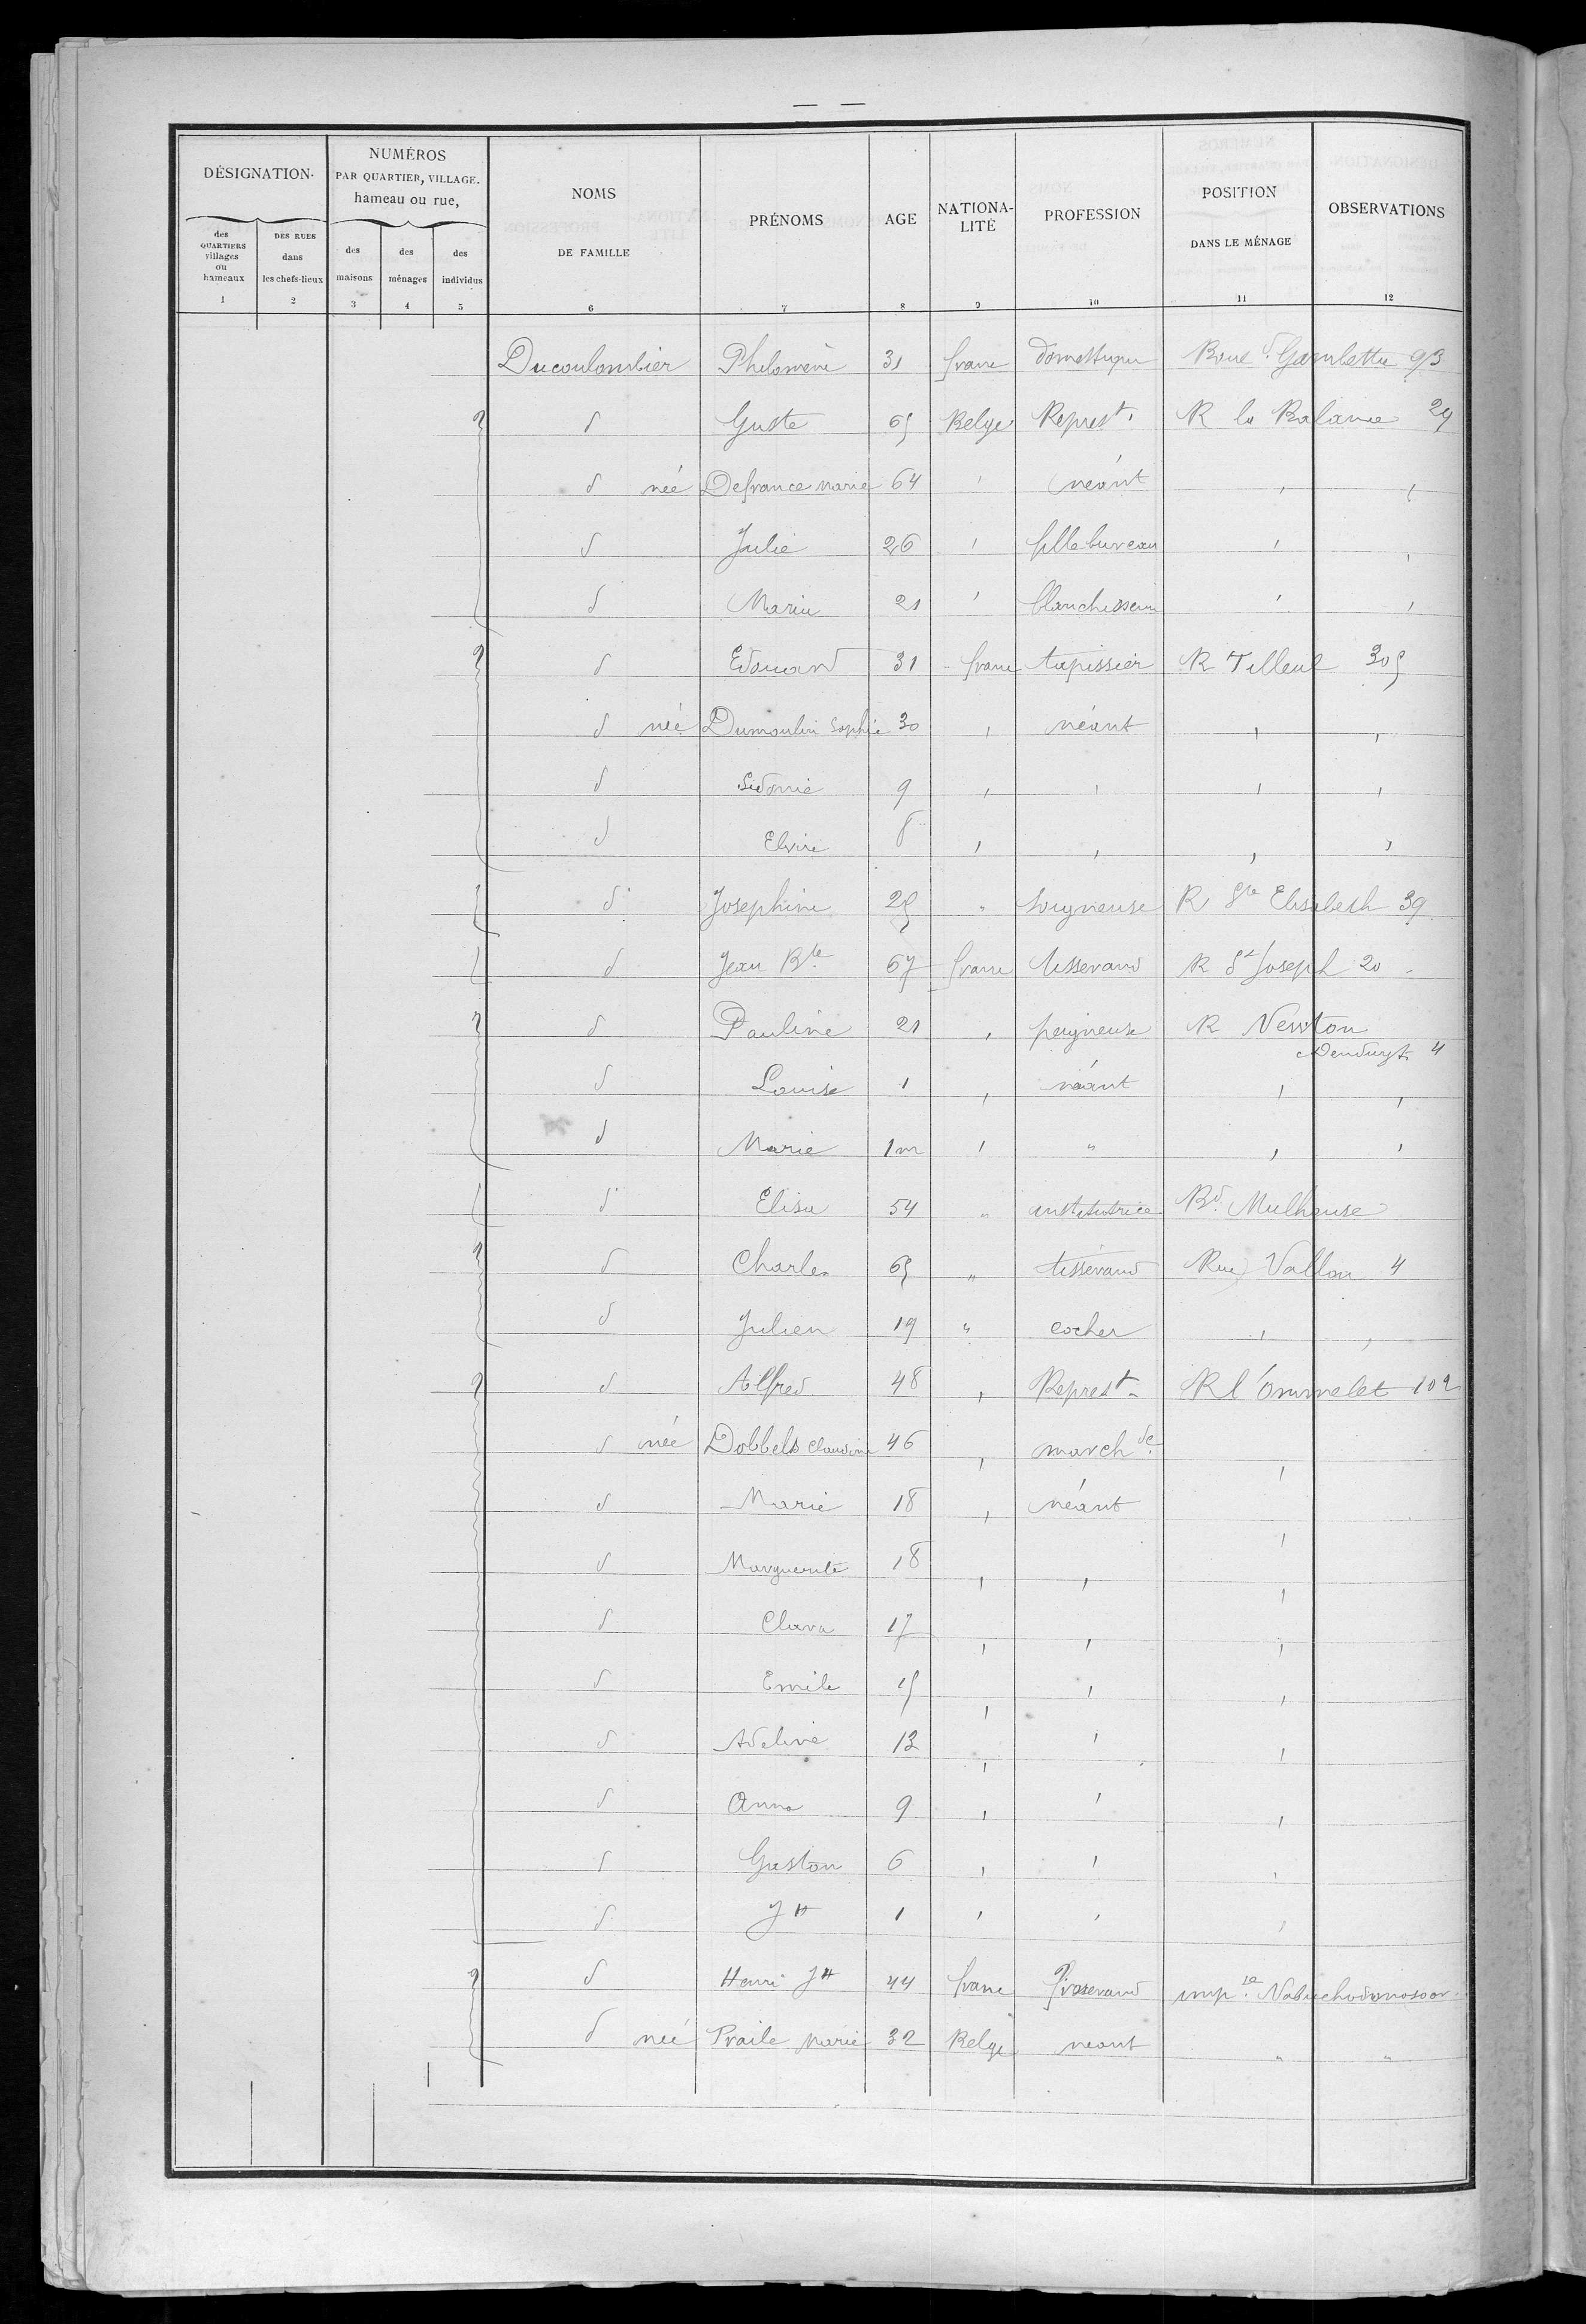 DÉSIGNATION
NUMÉROS PAR QUARTIER, VILLAGE. hameau ou rue,
NOMS DE FAMILLE
PRÉNOMS
AGE
NATIONALITÉ
PROFESSION
POSITION DANS LE MÉNAGE
OBSERVATIONS
des QUARTIERS villages ou hameaux
DES RUES dans les chefs-lieux
des maisons
des ménages
des individus
1 2 3 4 5 6 7 8 9 10 11 12
Ducoulombier Philomène 31 franc Boul d. Gambetta 93
d Guste 65 Belge Represt. R la Balance 29
d née Defrance Marie 64 ' néant ' '
d Julie 26 ' fille bureau ' '
d Marie 21 ' ' '
d Edouard 31 franc tapissier R Tilleul 305
d née Dumoulin Sophie 30 ' néant ' '
d Sidonie 9 ' ' ' '
d Elvire 8 ' ' ' '
d Josephine 25 " soigneuse R Ste Elisabeth 39
d Jean Bte 67 franc tisserand R St Joseph 20
d Pauline 21 ' peigneuse R Newton
4
d Louise 1 ' néant ' '
d Marie 1m ' " ' '
d Elisa 54 " institutrice Bd. Mulhouse
d Charles 65 " tisserand Rue Vallon 4
d Julien 19 " cocher ' '
d Alfred 48 ' Represt. R l'ommelet 102
d née Dobbels Claudine 46 ' marchde. '
d Marie 18 ' néant '
d Marguerite 18 ' ' '
d Clara 17 ' ' '
d Emile 15 ' ' '
d Adeline 13 ' ' '
d Anna 9 ' ' '
d Gaston 6 ' ' '
d Jh 1 ' ' '
d Henri Jh 44 franc impse. Nabuchodonosoor
d née Praile Marie 32 Belge néant " "